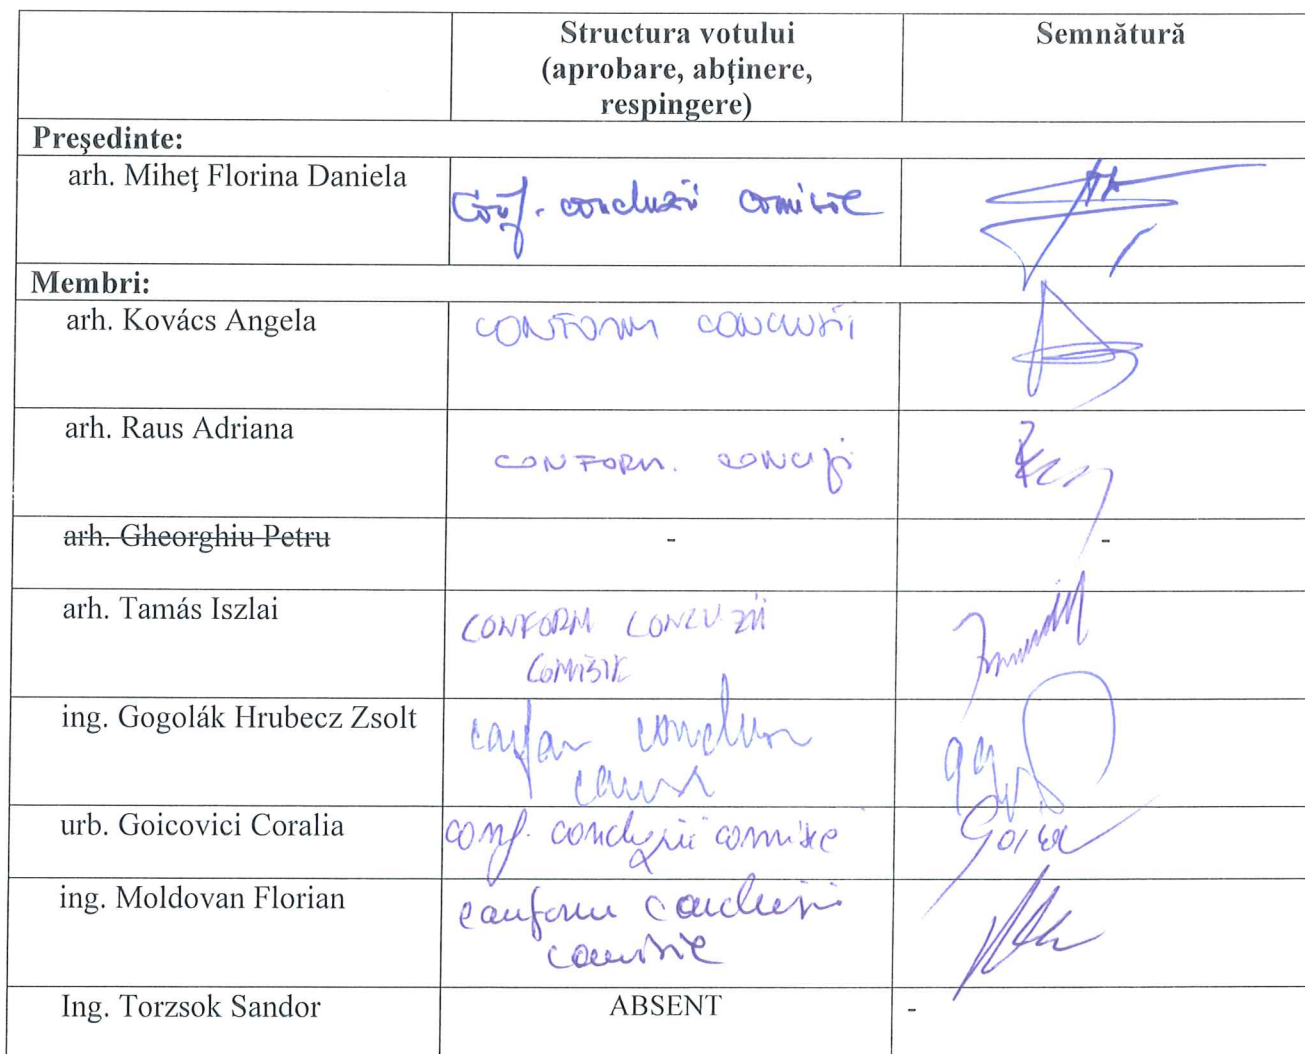 Structura votului
(aprobare, abţinere,
respingere)
Semnătură
Preşedinte:
arh. Miheţ Florina Daniela
Conf. concluzii comisie
Membri:
arh. Kovács Angela
CONFORM CONCLUZII
arh. Raus Adriana
CONFORM.
arh. Gheorghiu Petru
-
-
arh. Tamás Iszlai
CONFORM CONCLUZII
COMISIE
ing. Gogolák Hrubecz Zsolt
urb. Goicovici Coralia
conf. concluzii comisie
ing. Moldovan Florian
conform concluzii
comisie
Ing. Torzsok Sandor
ABSENT
-